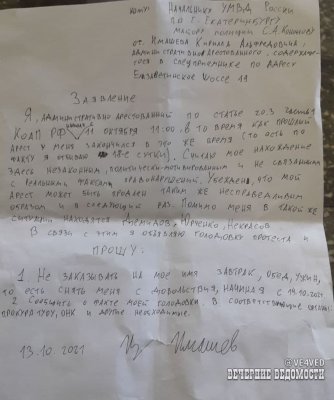 кому: Начальнику УМВД России
по г. Екатеринбургу
майору полиции С.А. Кошкину
от: Имашева Кирилла
административно арестованного, содержаще-
гося в спецприемнике по адресу
Елизаветинское шоссе 19
Заявление
Я, административно арестованный по статье 20.3 часть 1
КоАП РФ 11 октября 11:00, в то время как прошлый
арест у меня закончился в это же время (то есть по
факту я отбываю сутки). Считаю мое нахождение
здесь незаконным, политически-мотивированным и не связанным
с реальным фактом правонарушения. Убежден, что мой
арест может быть продлен таким же несправедливым
образом и в следующий раз. Помимо меня в такой же
ситуации находятся Демидов, Юрченко, Некрасов
В связи с этим я объявляю голодовку протеста и
прошу:
1. Не заказывать на мое имя завтрак, обед, ужин,
то есть снять меня с довольствия, начиная с 14.10.2021
2. Сообщить о факте моей голодовки в соответствующие органы:
прокуратуру, ОНК и другие необходимые.
13.10.2021 Имашев
@VE4VED
ВЕЧЕРНИЕ ВЕДОМОСТИ